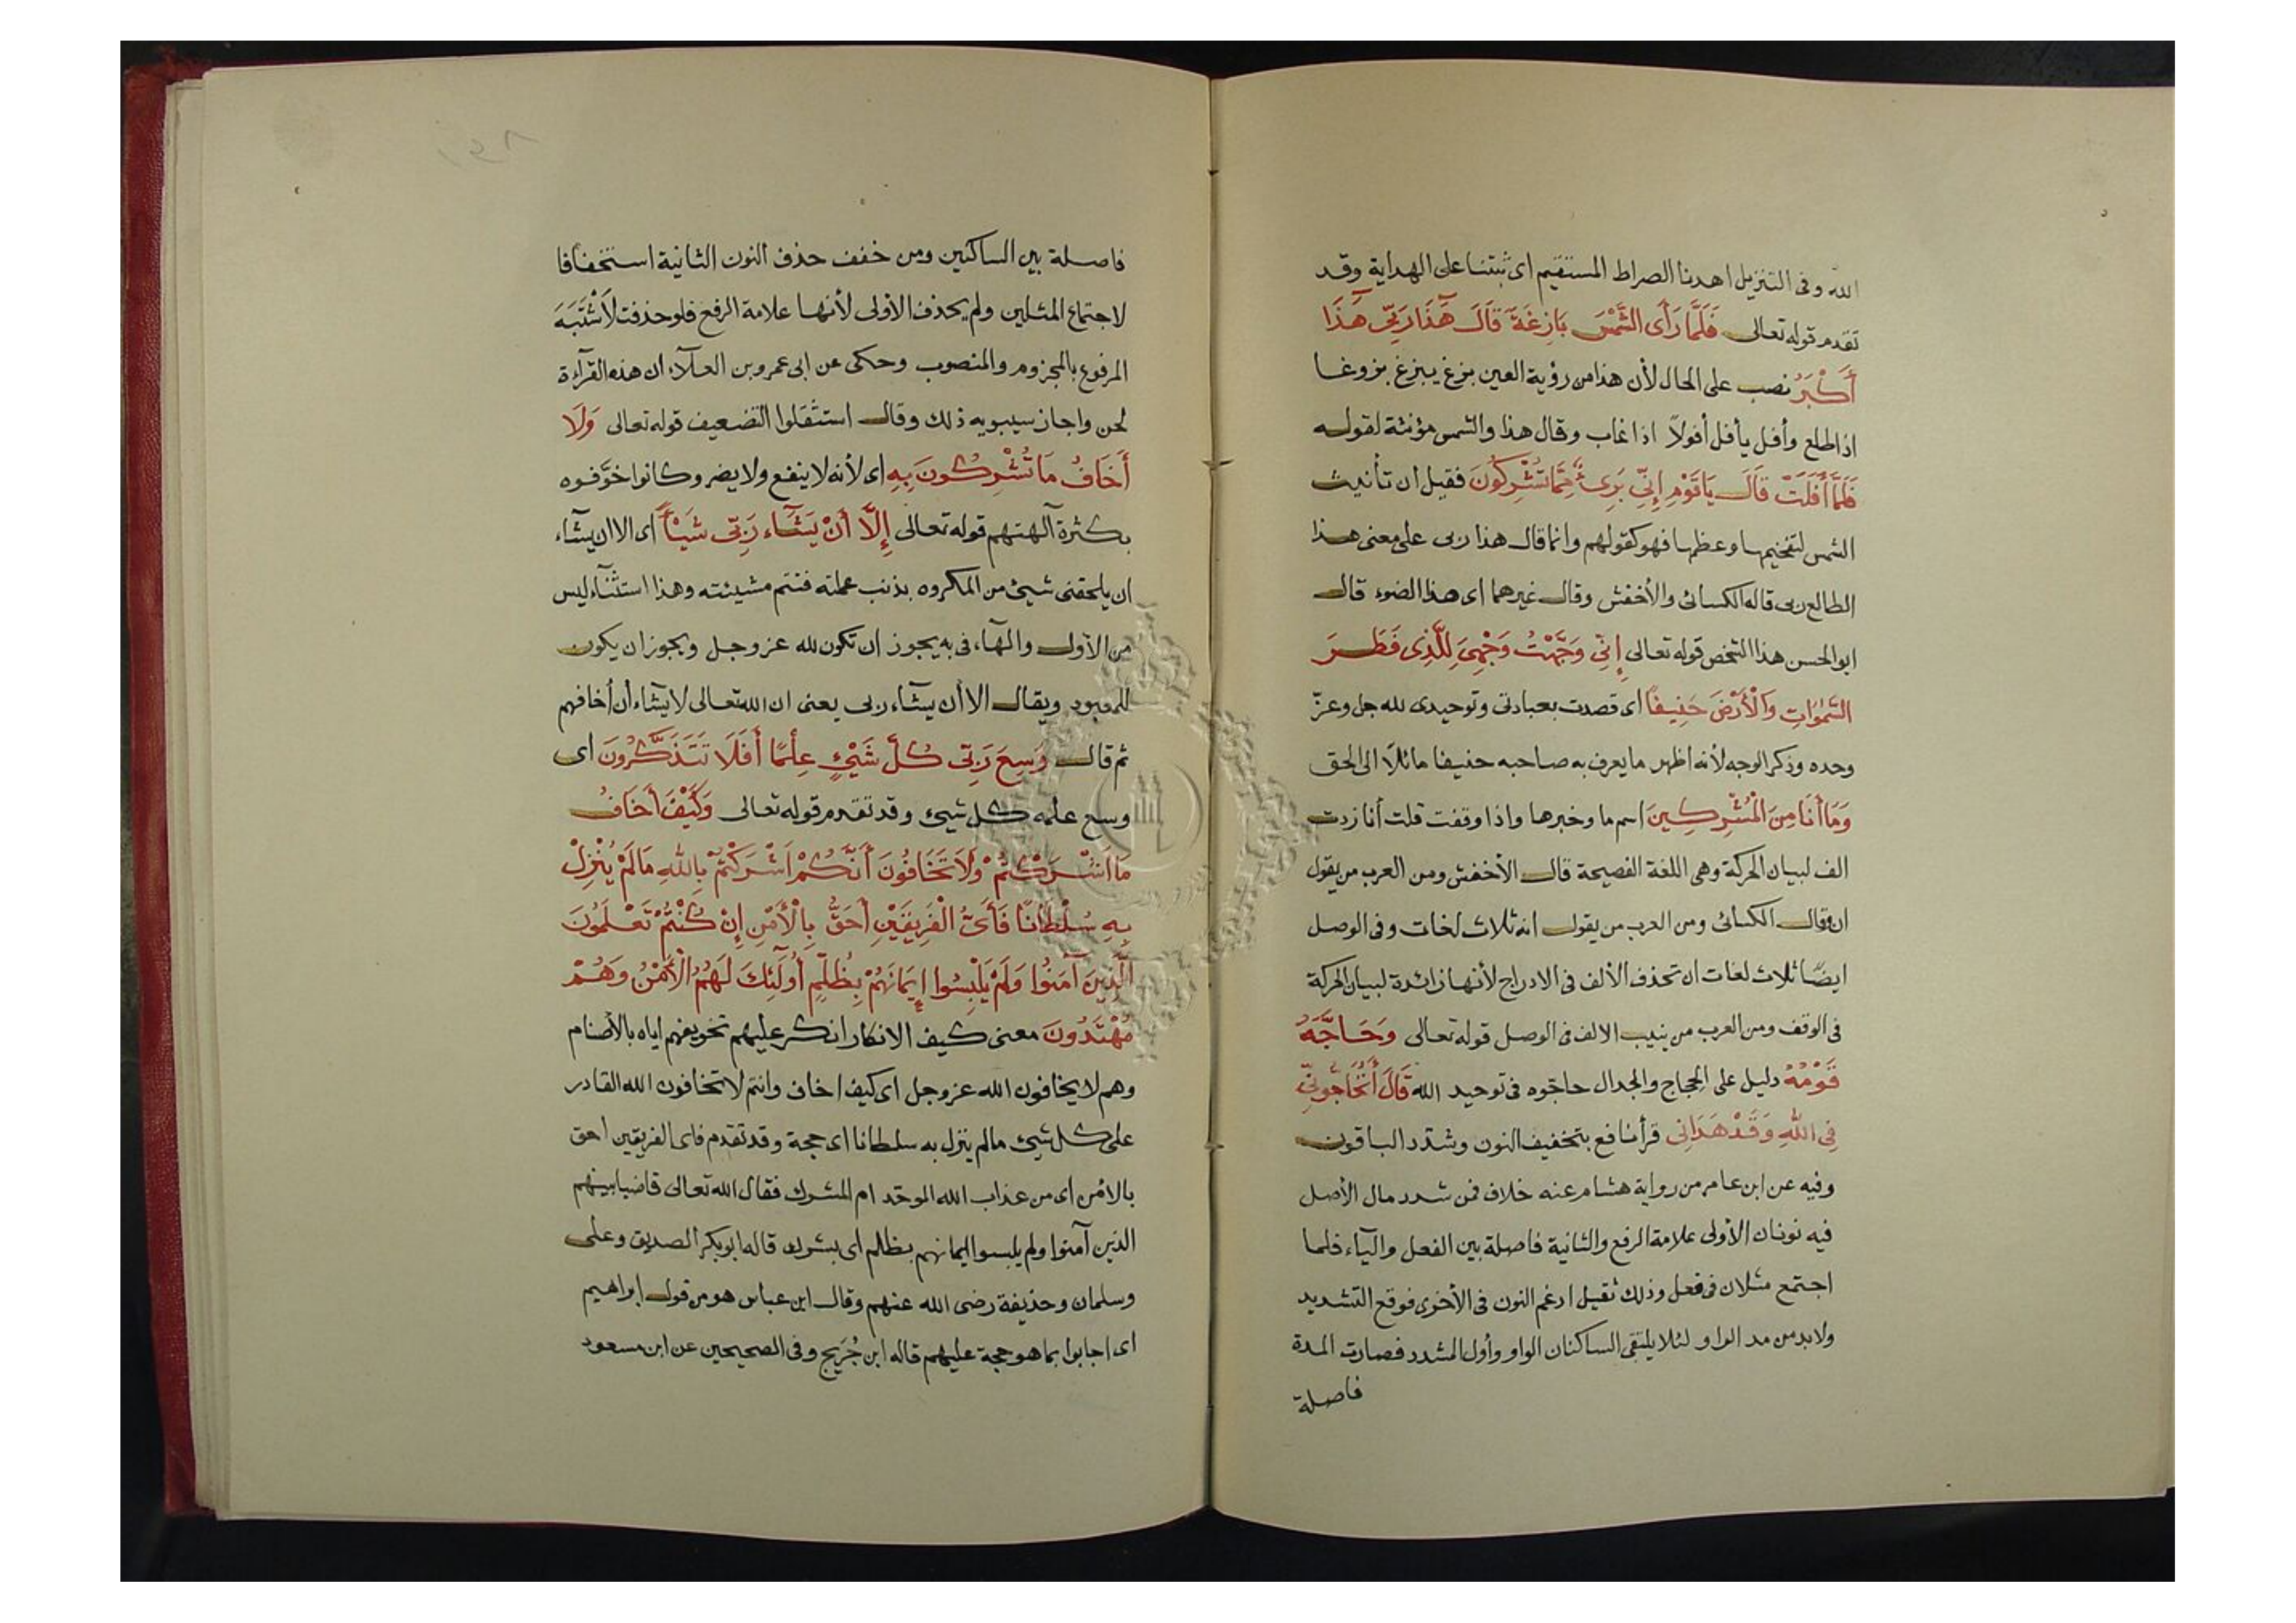 الله وفى التنزيل اهدنا الصراط المستقيم اى ثبتنا على الهداية وقد
تقدم قوله تعالى فَلَمَّا رَأَى الشَّمْسَ بَازِغَةً قَالَ هَذَا رَبِّي هَذَا
أَكْبَرُ نصب على الحال لأن هذا من رؤية العين بزغ يبزغ بزوغا
اذا طلع وأفل يأفل أفولاً اذا غاب وقال هذا والشمس مؤنثة لقوله
فَلَمَّا أَفَلَتْ قَالَ يَا قَوْمِ إِنِّي بَرِىءٌ مِمَّا تُشْرِكُونَ فقيل ان تأنيث
الشمس لتفخيمها وعظمها فهو كقولهم وانما قال هذا ربى على معنى هذا
الطالع ربى قاله الكسائى والأخفش وقال غيرهما اى هذا الضوء قال
ابو الحسن هذا الشخص قوله تعالى إِنِّي وَجَّهْتُ وَجْهِيَ لِلَّذِى فَطَرَ
السَّمٰوَاتِ وَالْأَرْضَ حَنِيفًا اى قصدت بعبادتى وتوحيدى لله جل وعزّ
وحده وذكر الوجه لأنه اظهر ما يعرف به صاحبه حنيفا مائلا الى الحق
وَمَا أَنَا مِنَ الْمُشْرِكِينَ اسم ما وخبرها واذا وقفت قلت أنا زدت
الف لبيان الحركة وهى اللغة الفصيحة قال الأخفش ومن العرب من يقول
ان وقال الكسائى ومن العرب من يقول انه ثلاث لغات وفى الوصل
ايضًا ثلاث لغات ان تحذف الألف فى الادراج لأنها زائدة لبيان الحركة
فى الوقف ومن العرب من يثبت الالف فى الوصل قوله تعالى وَحَاجَّهُ
قَوْمُهُ دليل على الحجاج والجدال حاجّوه فى توحيد الله قَالَ أَتُحَاجُّونِّي
فِى اللهِ وَقَدْ هَدَانِى قرأ نافع بتخفيف النون وشدّد الباقون
وفيه عن ابن عامر من رواية هشام عنه خلاف فمن شدد مال الأصل
فيه نونان الأولى علامة الرفع والثانية فاصلة بين الفعل والياء فلما
اجتمع مثلان فى فعل وذلك ثقيل ادغم النون فى الأخرى فوقع التشديد
ولابد من مد الواو لئلا يلتقى الساكنان الواو وأول المشدد فصارت المدة
فاصلة
فاصلة بين الساكنين ومن خفف حذف النون الثانية استخفافا
لاجتماع المثلين ولم يحذف الأولى لأنها علامة الرفع فلو حذفت لَاشْتَبَهَ
المرفوع بالمجزوم والمنصوب وحكى عن ابى عمرو بن العلاء ان هذه القرآءة
لحن واجاز سيبويه ذلك وقال استثقلوا التضعيف قوله تعالى وَلَا
أَخَافُ مَا تُشْرِكُونَ بِهِ اى لأنه لا ينفع ولا يضر وكانوا خوَّفوه
بكثرة آلهتهم قوله تعالى إِلَّا أَنْ يَشَاء رَبِّى شَيْئًا اى الا ان يشاء
ان يلحقنى شيئ من المكروه بذنب عملته فتتم مشيئته وهذا استثناء ليس
من الأول والهآء فى به يجوز ان تكون لله عز وجل ويجوز ان يكون
للمعبود ويقال الا أن يشاء ربى يعنى ان الله تعالى لا يشاء أن أخافهم
ثم قال وَسِعَ رَبِّى كُلَّ شَيْئٍ عِلْمًا أَفَلَا تَتَذَكَّرُونَ اى
وسع علمه كل شيئ وقد تقدم قوله تعالى وَكَيْفَ أَخَافُ
مَا اَشْرَكْتُمْ وَلَا تَخَافُونَ أَنَّكُمْ اَشْرَكْتُمْ بِاللهِ مَا لَمْ يُنْزِلْ
بِهِ سُلْطَانًا فَأَىُّ الْفَرِيقَيْنِ أَحَقُّ بِالْأَمْنِ إِنْ كُنْتُمْ تَعْلَمُونَ
الَّذِينَ آمَنُوا وَلَمْ يَلْبِسُوا إِيمَانَهُمْ بِظُلْمٍ أُولَئِكَ لَهُمُ الْأَمْنُ وَهُمْ
مُهْتَدُونَ معنى كيف الانكار انكر عليهم تخويفهم اياه بالأصنام
وهم لا يخافون الله عز وجل اى كيف اخاف وانتم لا تخافون الله القادر
على كل شيئ ما لم ينزل به سلطانا اى حجة وقد تقدم فاى الفريقين احق
بالأمن اى من عذاب الله الموحّد ام المشرك فقال الله تعالى قاضيا بينهم
الذين آمنوا ولم يلبسوا ايمانهم بظلم اى بشرك قاله ابو بكر الصديق وعلى
وسلمان وحذيفة رضى الله عنهم وقال ابن عباس هو من قول إبراهيم
اى اجابوا بما هو حجة عليهم قاله ابن جُرَيج وفى الصحيحين عن ابن مسعود